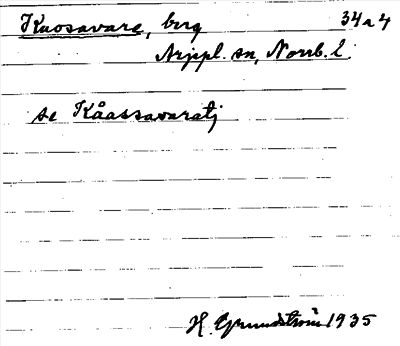 Kuosavare, berg 34a4
Arjepl. sn, Norrb. l.
se Kåassavaratj
H. Grundström 1935